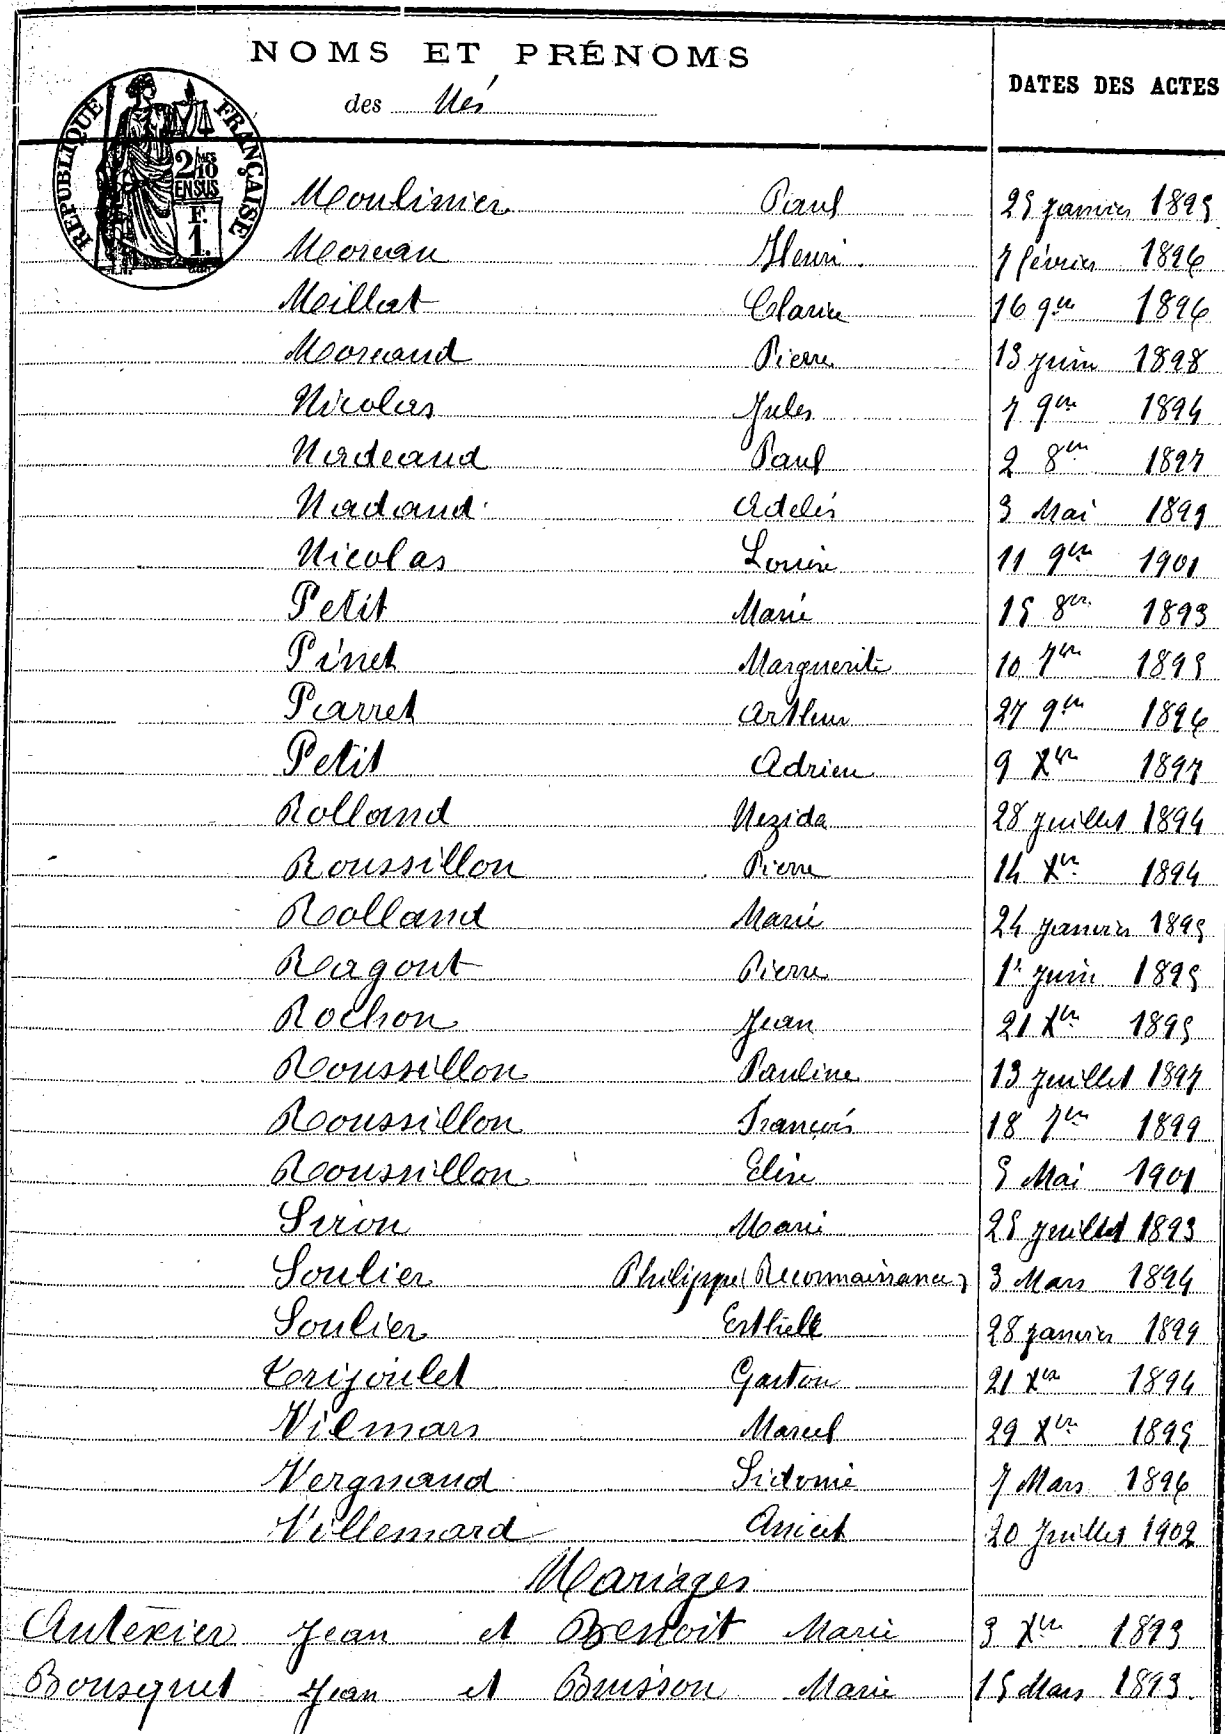 NOMS ET PRÉNOMS
des Nés
DATES DES ACTES
RÉPUBLIQUE FRANÇAISE
2/10 EN SUS
F.
1.
Moulinier Paul 25 janvier 1895
Moreau Henri 7 février 1896
Meillat Clarice 16 9bre 1896
Moreaud Pierre 13 juin 1898
Nicolas Jules 7 9bre 1894
Nadeaud Paul 2 8bre 1897
Nadaud Adelis 3 Mai 1899
Nicolas Louise 11 9bre 1901
Petit Marie 15 8bre 1893
Pinet Marguerite 10 7bre 1895
Parret Arthur 27 9bre 1896
Petit Adrien 9 Xbre 1897
Rolland Nezida 28 juillet 1894
Roussillon Pierre 14 Xbre 1894
Rolland Marie 24 janvier 1895
Ragout Pierre 1r juin 1895
Rochon Jean 21 Xbre 1895
Roussillon Pauline 13 juillet 1897
Roussillon François 18 7bre 1899
Roussillon Elise 5 Mai 1901
Siron Marie 25 juillet 1893
Soulier Philippe (Reconnaissance) 3 Mars 1894
Soulier Esthelle 28 janvier 1899
Trijoulet Gaston 21 Xbre 1894
Vilmars Marcel 29 Xbre 1895
Vergnaud Sidonie 7 Mars 1896
Villemard Anicet 20 Juillet 1902
Mariages
Autexier Jean et Benoit Marie 3 Xbre 1893
Bousquet Jean et Buisson Marie 15 Mars 1893.